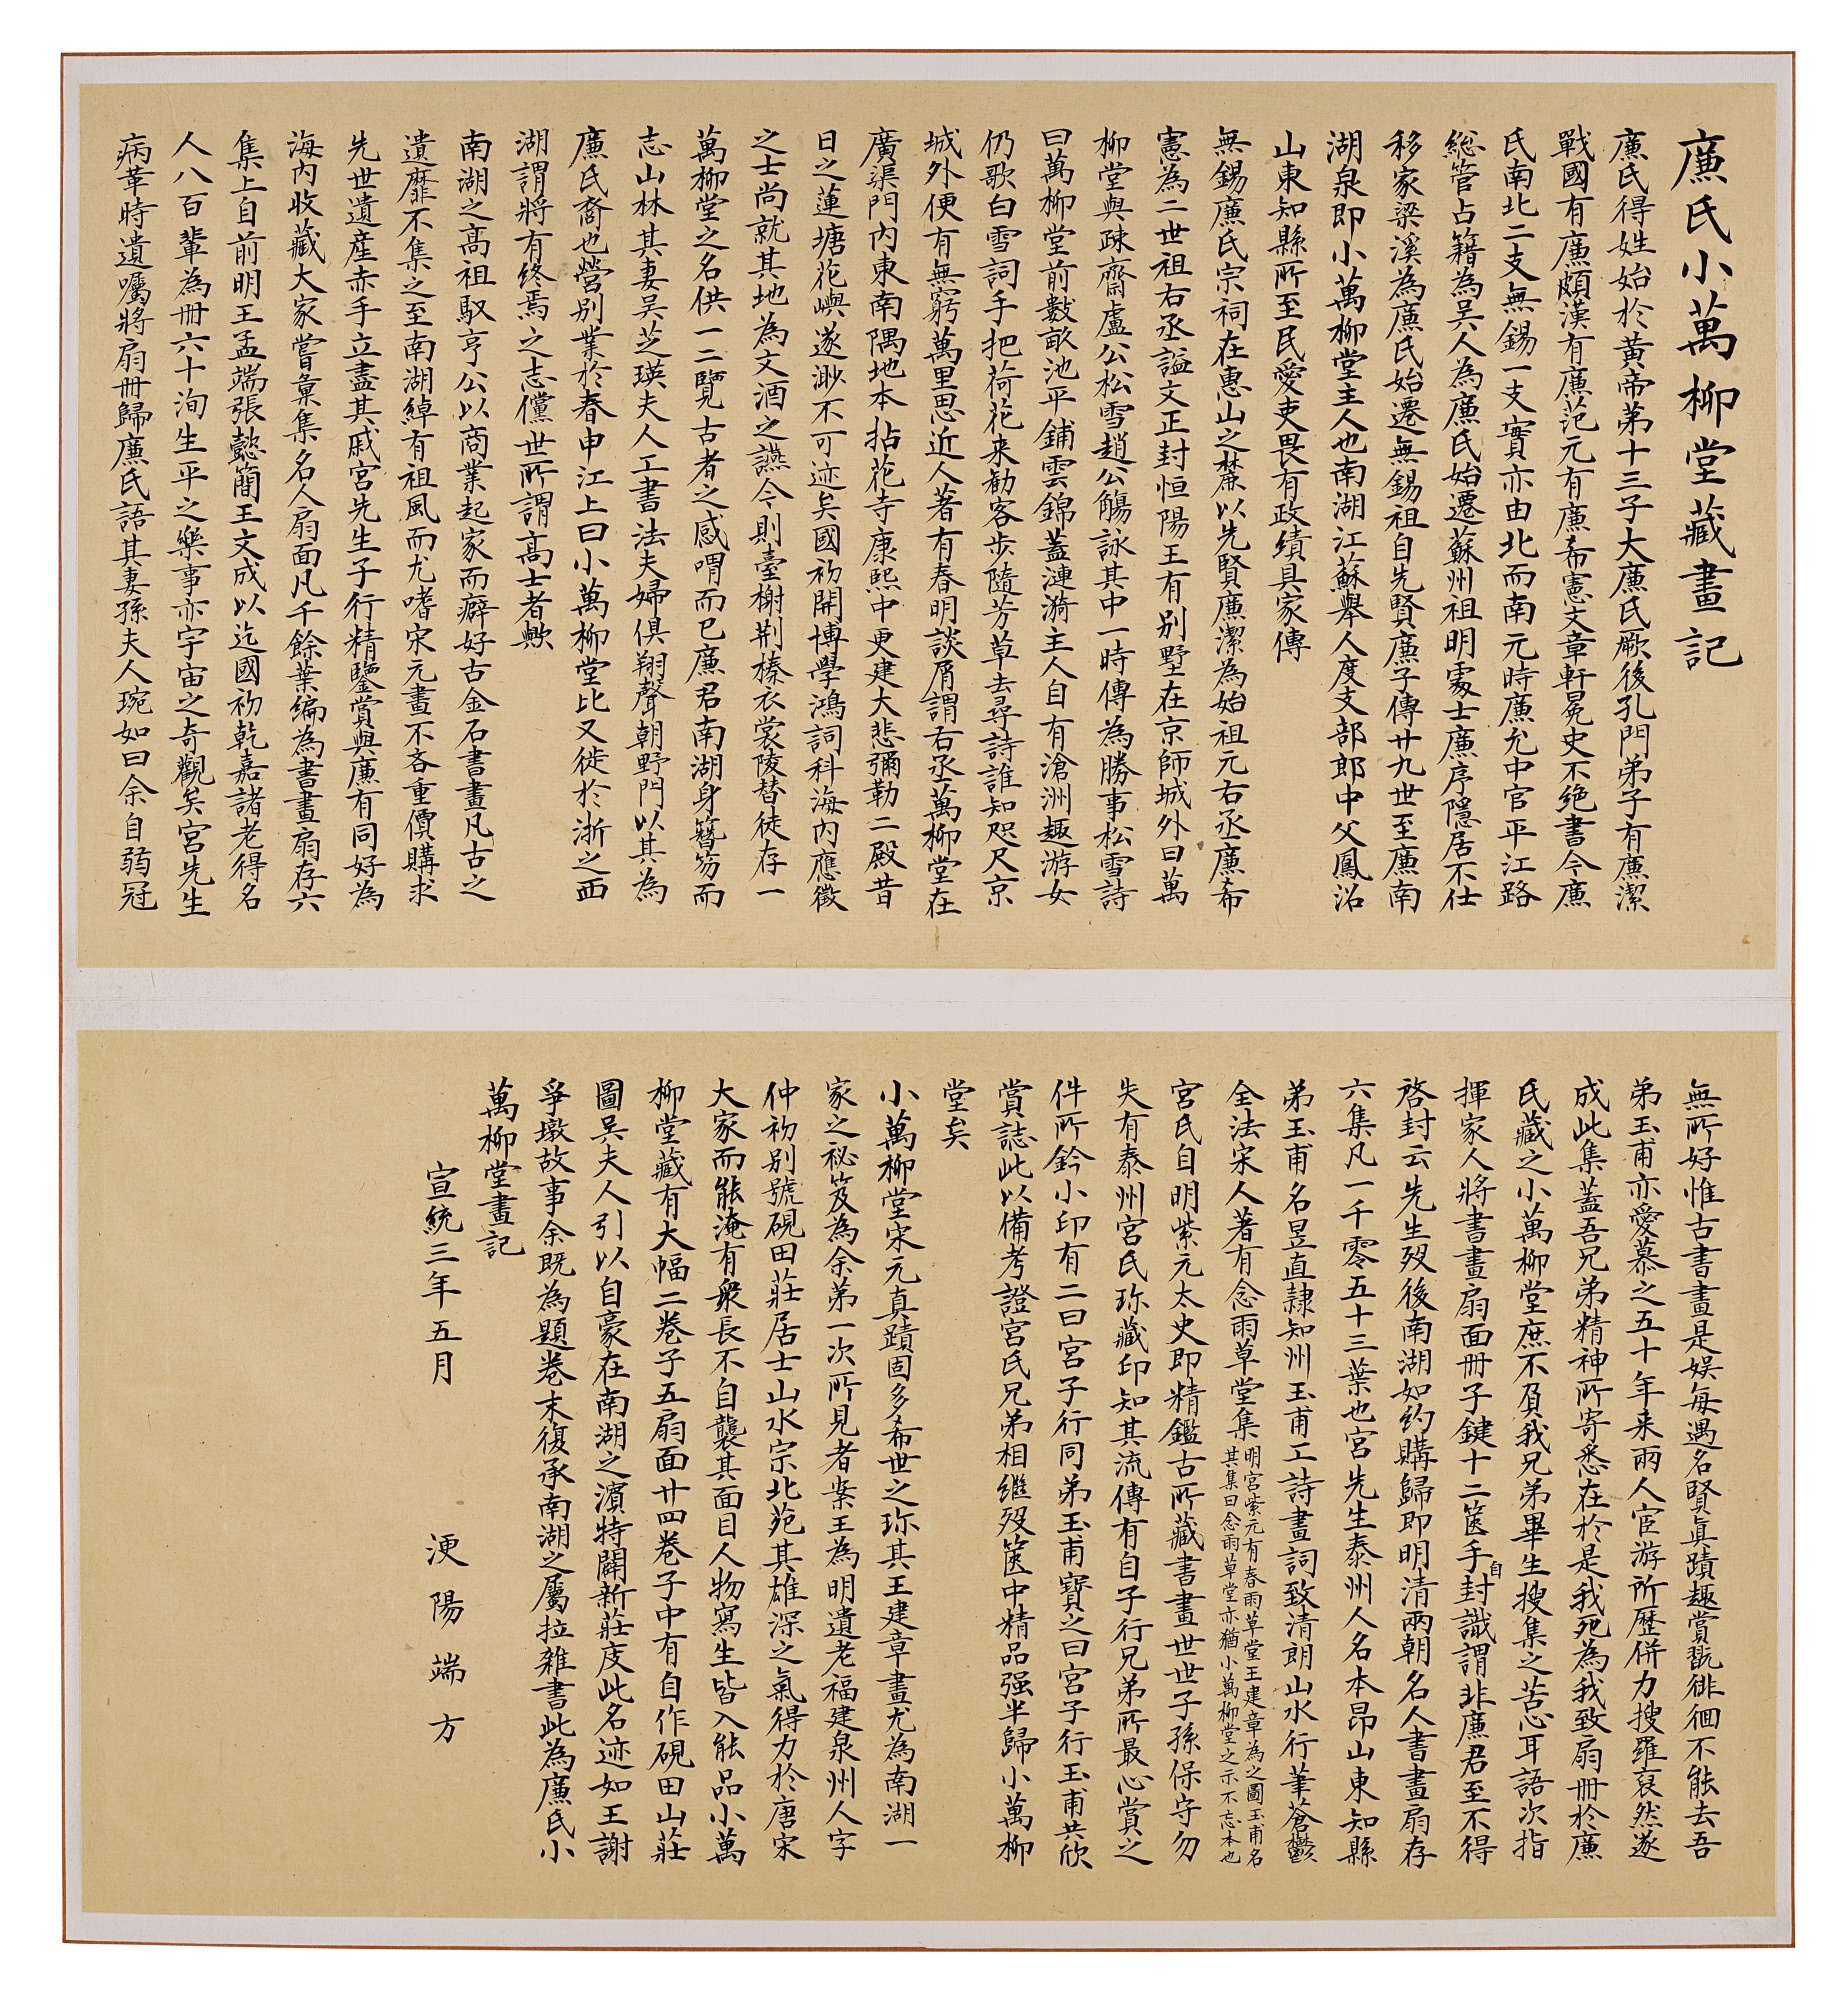 廉氏小萬柳堂藏畫記
廉氏得姓始於黃帝弟十三子大廉氏厥後孔門弟子有廉潔
戰國有廉頗漢有廉范元有廉希憲文章軒冕史不絶書今廉
氏南北二支無錫一支實亦由北而南元時廉允中官平江路
総管占籍為吳人為廉氏始遷蘇州祖明處士廉序隱居不仕
移家梁溪為廉氏始遷無錫祖自先賢廉子傳廿九世至廉南
湖泉即小萬柳堂主人也南湖江蘇舉人度支部郎中父鳳沼
山東知縣所至民愛吏畏有政績具家傳
無錫廉氏宗祠在惠山之麓以先賢廉潔為始祖元右丞廉希
憲為二世祖右丞謚文正封恒陽王有別墅在京師城外曰萬
柳堂與疎齋盧公松雪趙公觴詠其中一時傳為勝事松雪詩
曰萬柳堂前數畝池平鋪雲錦蓋漣漪主人自有滄洲趣游女
仍歌白雪詞手把荷花来勸客步隨芳草去尋詩誰知咫尺京
城外便有無窮萬里思近人著有春明談屑謂右丞萬柳堂在
廣渠門內東南隅地本拈花寺康熙中更建大悲彌勒二殿昔
日之蓮塘花嶼遂渺不可迹矣國初開博學鴻詞科海內應徵
之士尚就其地為文酒之讌今則臺榭荆榛衣裳陵替徒存一
萬柳堂之名供一二覽古者之感喟而已廉君南湖身簪笏而
志山林其妻吳芝瑛夫人工書法夫婦俱翔聲朝野門以其為
廉氏裔也營別業於春申江上曰小萬柳堂比又徙於浙之西
湖謂將有終焉之志儻世所謂高士者歟
南湖之高祖馭亨公以商業起家而癖好古金石書畫凡古之
遺靡不集之至南湖綽有祖風而尤嗜宋元畫不吝重價購求
先世遺産赤手立盡其戚宮先生子行精鑒賞與廉有同好為
海內收藏大家嘗彙集名人扇面凡千餘葉編為書畫扇存六
集上自前明王孟端張懿簡王文成以迄國初乾嘉諸老得名
人八百輩為冊六十洵生平之樂事亦宇宙之奇觀矣宮先生
病革時遺囑將扇冊歸廉氏語其妻孫夫人琬如曰余自弱冠
無所好惟古書畫是娱每遇名賢真蹟趣賞翫徘徊不能去吾
弟玉甫亦愛慕之五十年来兩人宦游所歷併力搜羅裒然遂
成此集蓋吾兄弟精神所寄悉在於是我死為我致扇冊於廉
氏藏之小萬柳堂庶不負我兄弟畢生搜集之苦心耳語次指
揮家人將書畫扇面冊子鍵十二篋手自封識謂非廉君至不得
啓封云先生歿後南湖如約購歸即明清兩朝名人書畫扇存
六集凡一千零五十三葉也宮先生泰州人名本昂山東知縣
弟玉甫名昱直隸知州玉甫工詩畫詞致清朗山水行筆蒼鬱
全法宋人著有念雨草堂集明宮紫元有春雨草堂王建章為之圖玉甫名
其集曰念雨草堂亦猶小萬柳堂之示不忘本也
宮氏自明紫元太史即精鑑古所藏書畫世世子孫保守勿
失有泰州宮氏珍藏印知其流傳有自子行兄弟所最心賞之
件所鈐小印有二曰宮子行同弟玉甫寶之曰宮子行玉甫共欣
賞誌此以備考證宮氏兄弟相繼歿篋中精品强半歸小萬柳
堂矣
小萬柳堂宋元真蹟固多希世之珍其王建章畫尤為南湖一
家之祕笈為余弟一次所見者案王為明遺老福建泉州人字
仲初別號硯田莊居士山水宗北苑其雄深之氣得力於唐宋
大家而能淹有衆長不自襲其面目人物寫生皆入能品小萬
柳堂藏有大幅二卷子五扇面廿四卷子中有自作硯田山莊
圖吳夫人引以自豪在南湖之濱特闢新莊庋此名迹如王謝
爭墩故事余既為題卷末復承南湖之屬拉雜書此為廉氏小
萬柳堂畫記
宣統三年五月　浭陽端方